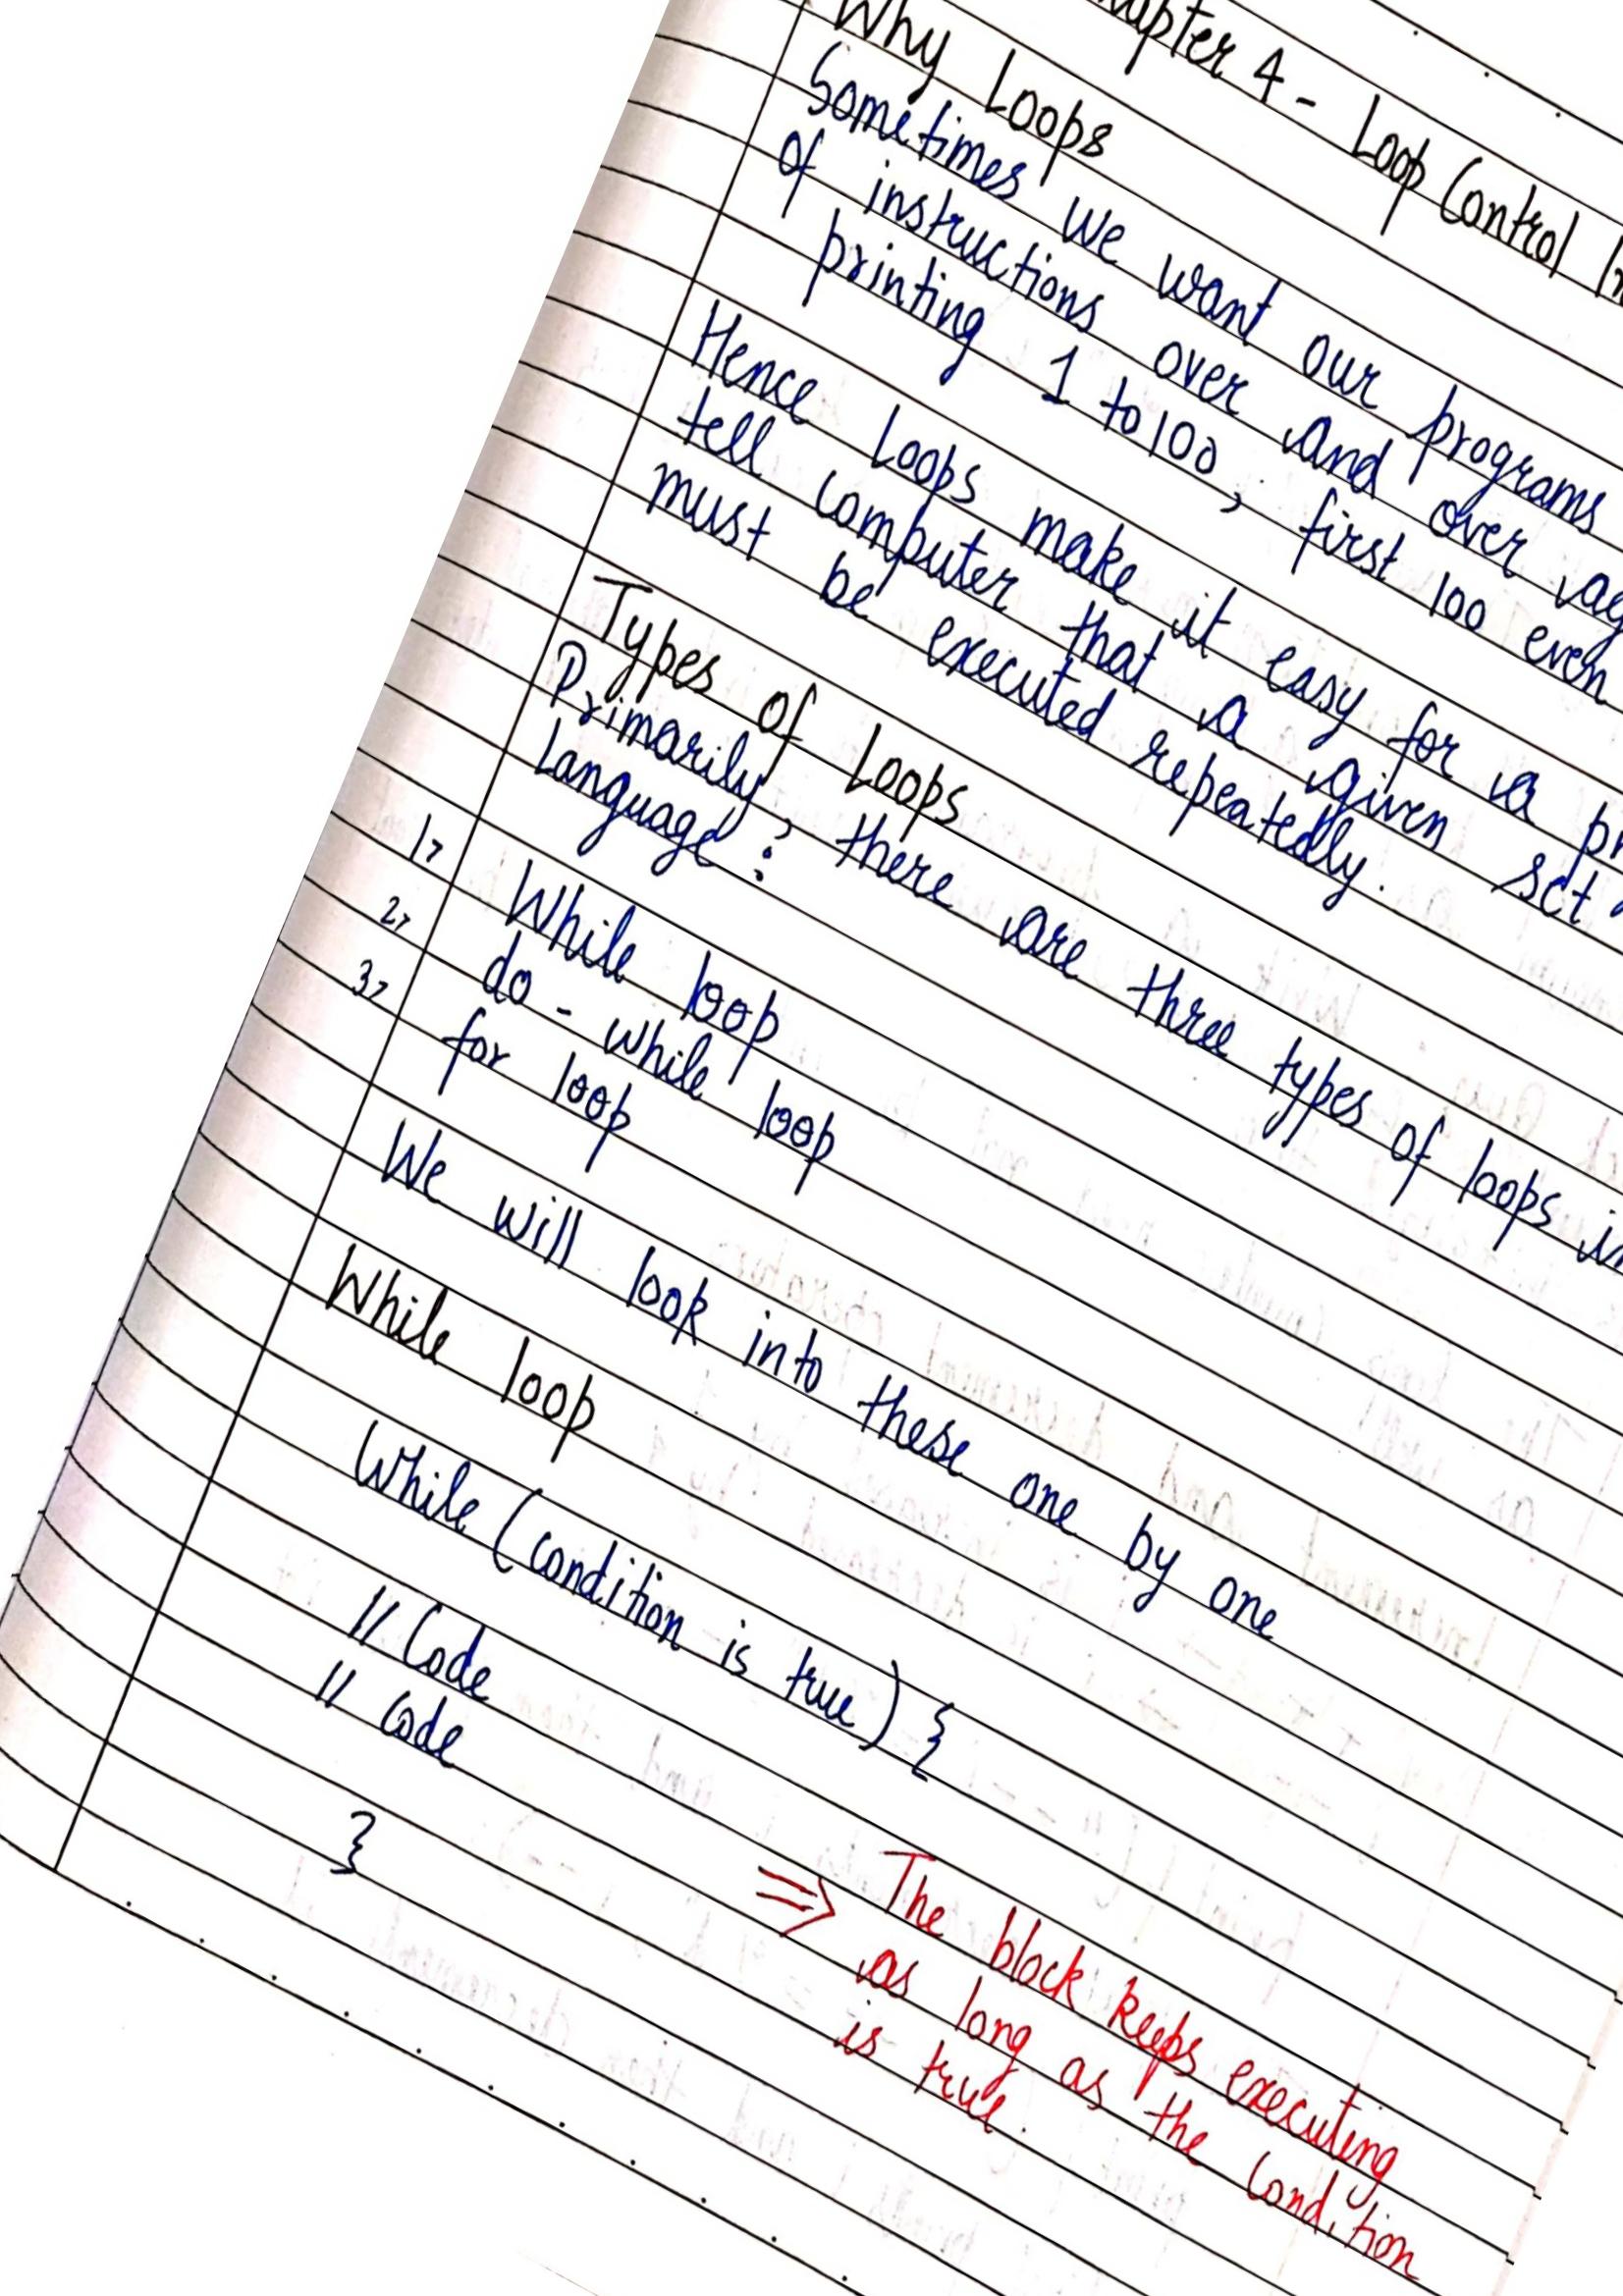 Chapter 4 - Loop Control
Why Loops
Sometimes we want our programs
of instructions over and over
printing 1 to 100, first 100 even
Hence Loops make it easy for a
tell computer that a given set
must be executed repeatedly.
Types of Loops
Primarily, there are three types of loops in
Language:
1> While loop
2> do - while loop
3> for loop
We will look into these one by one
While loop
While (condition is true) {
// Code
// Code
}
⇒ The block keeps executing
as long as the condition
is true.